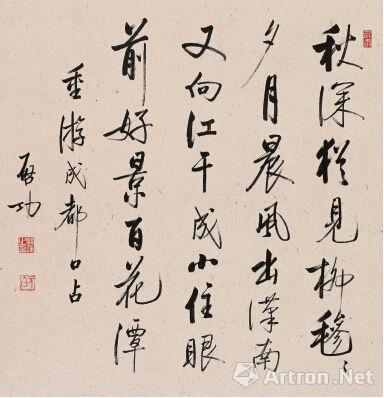 秋深猶見柳毿〻
夕月晨風出漢南
又向江干成小住眼
前好景百花潭
重游成都口占
啟功
Artron.Net